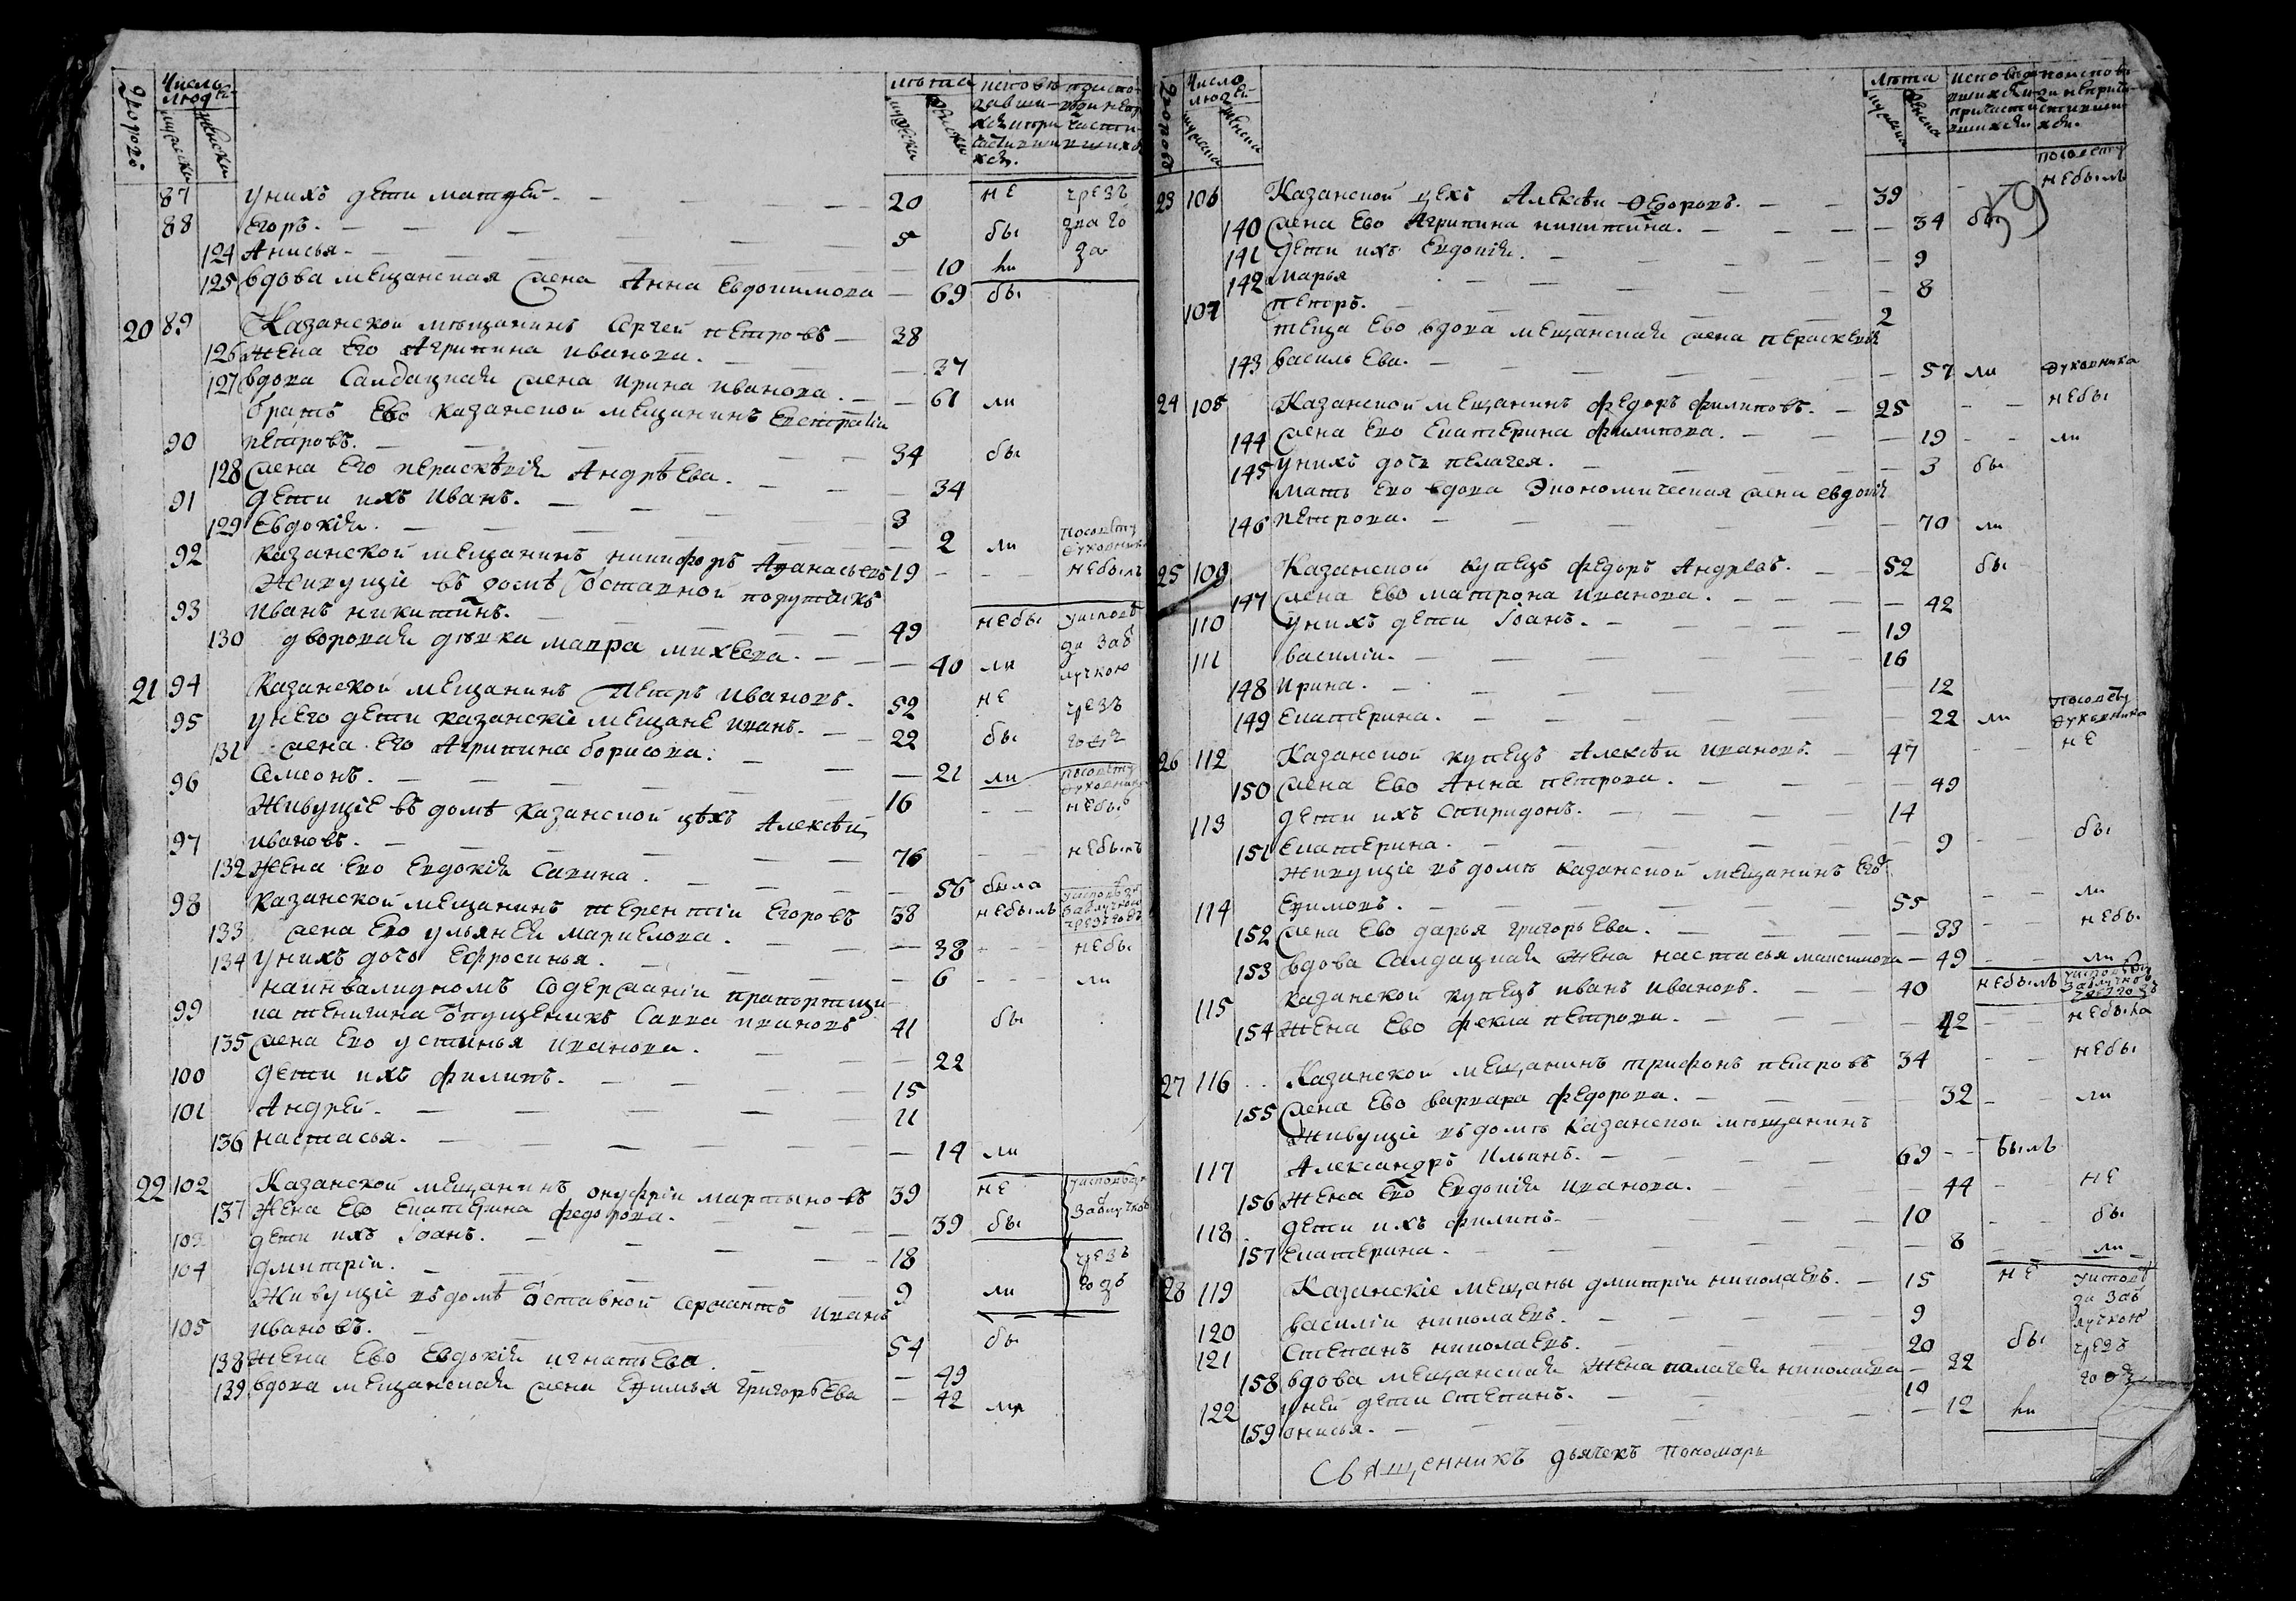 Дворовъ Число людей мужеска женска лѣта мужеска женска
87 у нихъ дети матѳей. 20 не чрезъ
88 Егоръ. 5 бы
124 Анисья. 10 ли
125 вдова мещанская жена Анна Евдокимова 69 бы
20 89 Казанской мѣщанинъ Сергей петровъ 38
126 жена Его Агрипина иванова. 37
127 вдова Салдацкая жена ирина иванова. 61 ли
братъ Ево казанской мещанинъ
90 петровъ. 34 бы
128 жена Его пераскѣвія Андрѣева. 34
91 дети ихъ иванъ. 3
129 Евдокія. 2 ли посовету духовника
92 казанской мещанинъ никифоръ Аѳанасьевъ 19 небылъ
Живущіе въ домѣ отставной порутчикъ
93 иванъ никитинъ. 49 небы
130 дворовая дѣвка мавра михеева. 40 ли
21 94 Казанской мещанинъ петръ ивановъ. 52 не чрезъ
95 у него дети казанскіе мещане иванъ. 22 бы
131 жена Его Агрипина борисова. 21 ли посовету духовника
96 Семеонъ. 16 небылъ
Живущіе въ домѣ казанской цѣхъ Алексѣй
97 ивановъ. 76 небылъ
132 жена Ево Евдокія Савина. 56 была
98 казанской мещанинъ терентіи Егоровъ 58 небылъ
133 жена Ево ульянея маркелова. 38 небы
134 у нихъ дочь Ефросинья. 6 ли
на инвалидномъ содержаніи
99 Савва ивановъ 41 бы
135 жена Ево устинья иванова. 22
100 дети ихъ филипъ. 15
101 Андрей. 11
136 настасья. 14 ли
22 102 Казанской мещанинъ онуфріи мартыновъ 39 не
137 жена Ево Екатерина федорова. 39 бы
103 дети ихъ Іоанъ. 18 чрезъ
104 дмитріи. 9 ли
Живущіе въ домѣ отставной сержантъ иванъ
105 ивановъ. 54 бы
138 жена Ево Евдокія игнатьева. 49
139 вдова мещанская жена Ефимья григорьева 42 ли
Дворовъ Число людей мужеска женска лѣта мужеска женска
59
23 106 Казанской цехъ Алексѣи Ѳедоровъ. 39 посовету небылъ
140 жена Ево Агрипина никитина. 34 бы
141 дети ихъ Евдокія. 9
142 марья 8
107 петръ. 2
теща Ево вдова мещанская жена пераскевія
143 васильева. 57 ли духовника
24 108 Казанской мещанинъ федоръ филиповъ. 25 небы
144 жена Ево Екатерина филипова. 19 ли
145 у нихъ дочь пелагея. 3 бы
мать Ево вдова Экономическая жена евдокія
146 петрова. 70 ли
25 109 Казанской купецъ федоръ Андреевъ. 52 бы
147 жена Ево матрона иванова. 42
110 у нихъ дети Іоанъ. 19
111 василіи. 16
148 ирина. 12
149 Екатерина. 22 ли посовету духовника
26 112 Казанской купецъ Алексѣи ивановъ. 47 не
150 жена Ево Анна петрова. 49
113 дети ихъ Спиридонъ. 14
151 Екатерина. 9 бы
живущіе въ домѣ казанской мещанинъ
114 Ефимовъ. 55 ли
152 жена Ево дарья григорьева. 33 небы
153 вдова Салдацкая жена настасья максимова 49 ли
115 казанской купецъ иванъ ивановъ. 40 небылъ
154 жена Ево фекла петрова. 42 небыла
27 116 Казанской мещанинъ трифонъ петровъ 34 небы
155 жена Ево варвара федорова. 32 ли
живущіе въ домѣ казанской мѣщанинъ
117 Александръ ильинъ. 69 былъ
156 жена Ево Евдокія иванова. 44 не
118 дети ихъ филипъ. 10 бы
157 Екатерина. 8 ли
28 119 Казанскіе мещаны дмитріи николаевъ. 15 не
120 василіи николаевъ. 9
121 Степанъ николаевъ. 20 бы чрезъ
158 вдова мещанская жена палагея николаева 32
122 у ней дети степанъ. 10
159 онисья. 12 ли
Священникъ дьячекъ пономарь